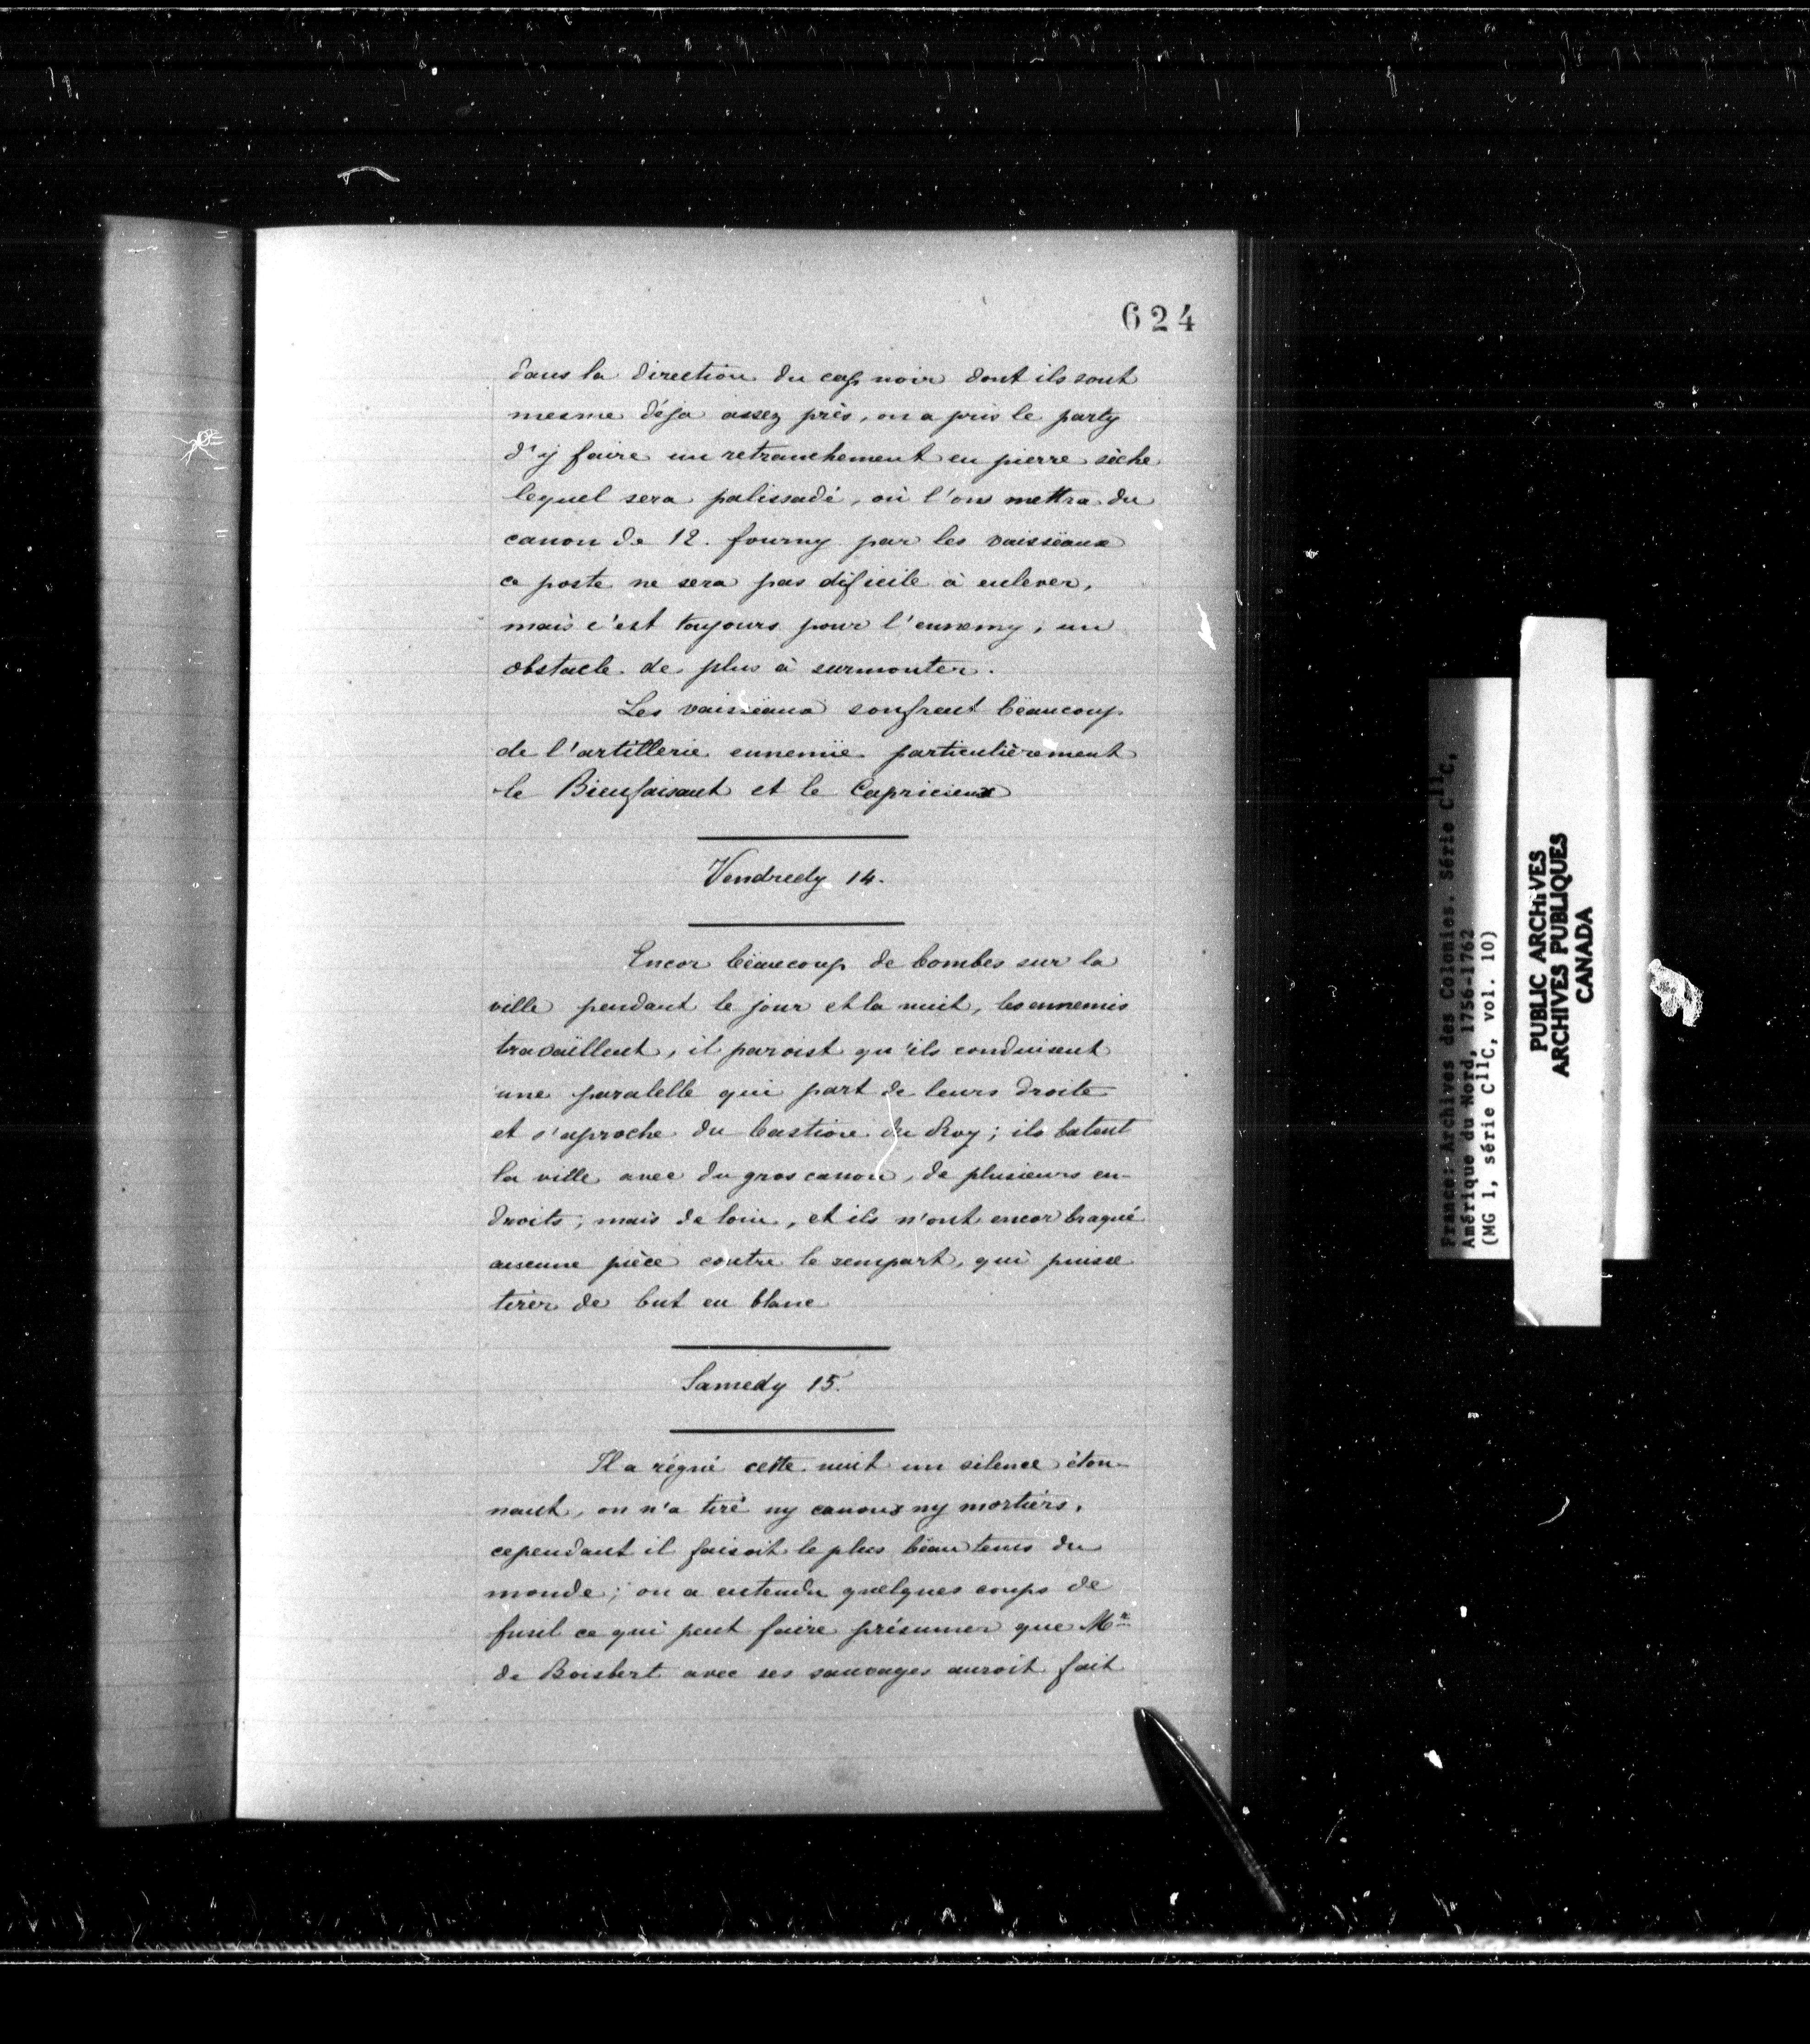 624
dans la direction du cap noir dont ils sont
mesme déja assez près, on a pris le party
d'y faire un retranchement en pierre sèche
lequel sera palissadé, où l'on mettra du
canon de 12. fourny par les vaissëaux
ce poste ne sera pas dificile à enlever,
mais c'est toujours pour l'ennemy, un
obstacle de plus à surmonter.
Les vaissëaux soufrent bëaucoup
de l'artillerie ennemïe particulièrement
le Bienfaisant et le Capricieux
Vendredy 14.
Encor bëaucoup de bombes sur la
ville pendant le jour et la nuit, les ennemis
travaïllent, il paroist qu'ils conduisent
une paralelle qui part de leurs droite
et s'aproche du bastion du Roy; ils batent
la ville avec du gros canon, de plusieurs en-
droits; mais de loin, et ils n'ont encor braqué
aucune pièce contre le rempart, qui puisse
tirer de but en blanc
Samedy 15.
Il a régné cette nuit un silence éton-
nant, on n'a tiré ny canons ny mortiers,
cependant il faisoit le plus bëau tems du
monde; on a entendu quelques coups de
fusil ce qui peut faire présumer que Mr
de Boisbert avec ses sauvages auroit fait
France: Archives des Colonies. Série C11C,
Amérique du Nord, 1756-1762
(MG 1, série C11C, vol. 10)
PUBLIC ARCHIVES
ARCHIVES PUBLIQUES
CANADA